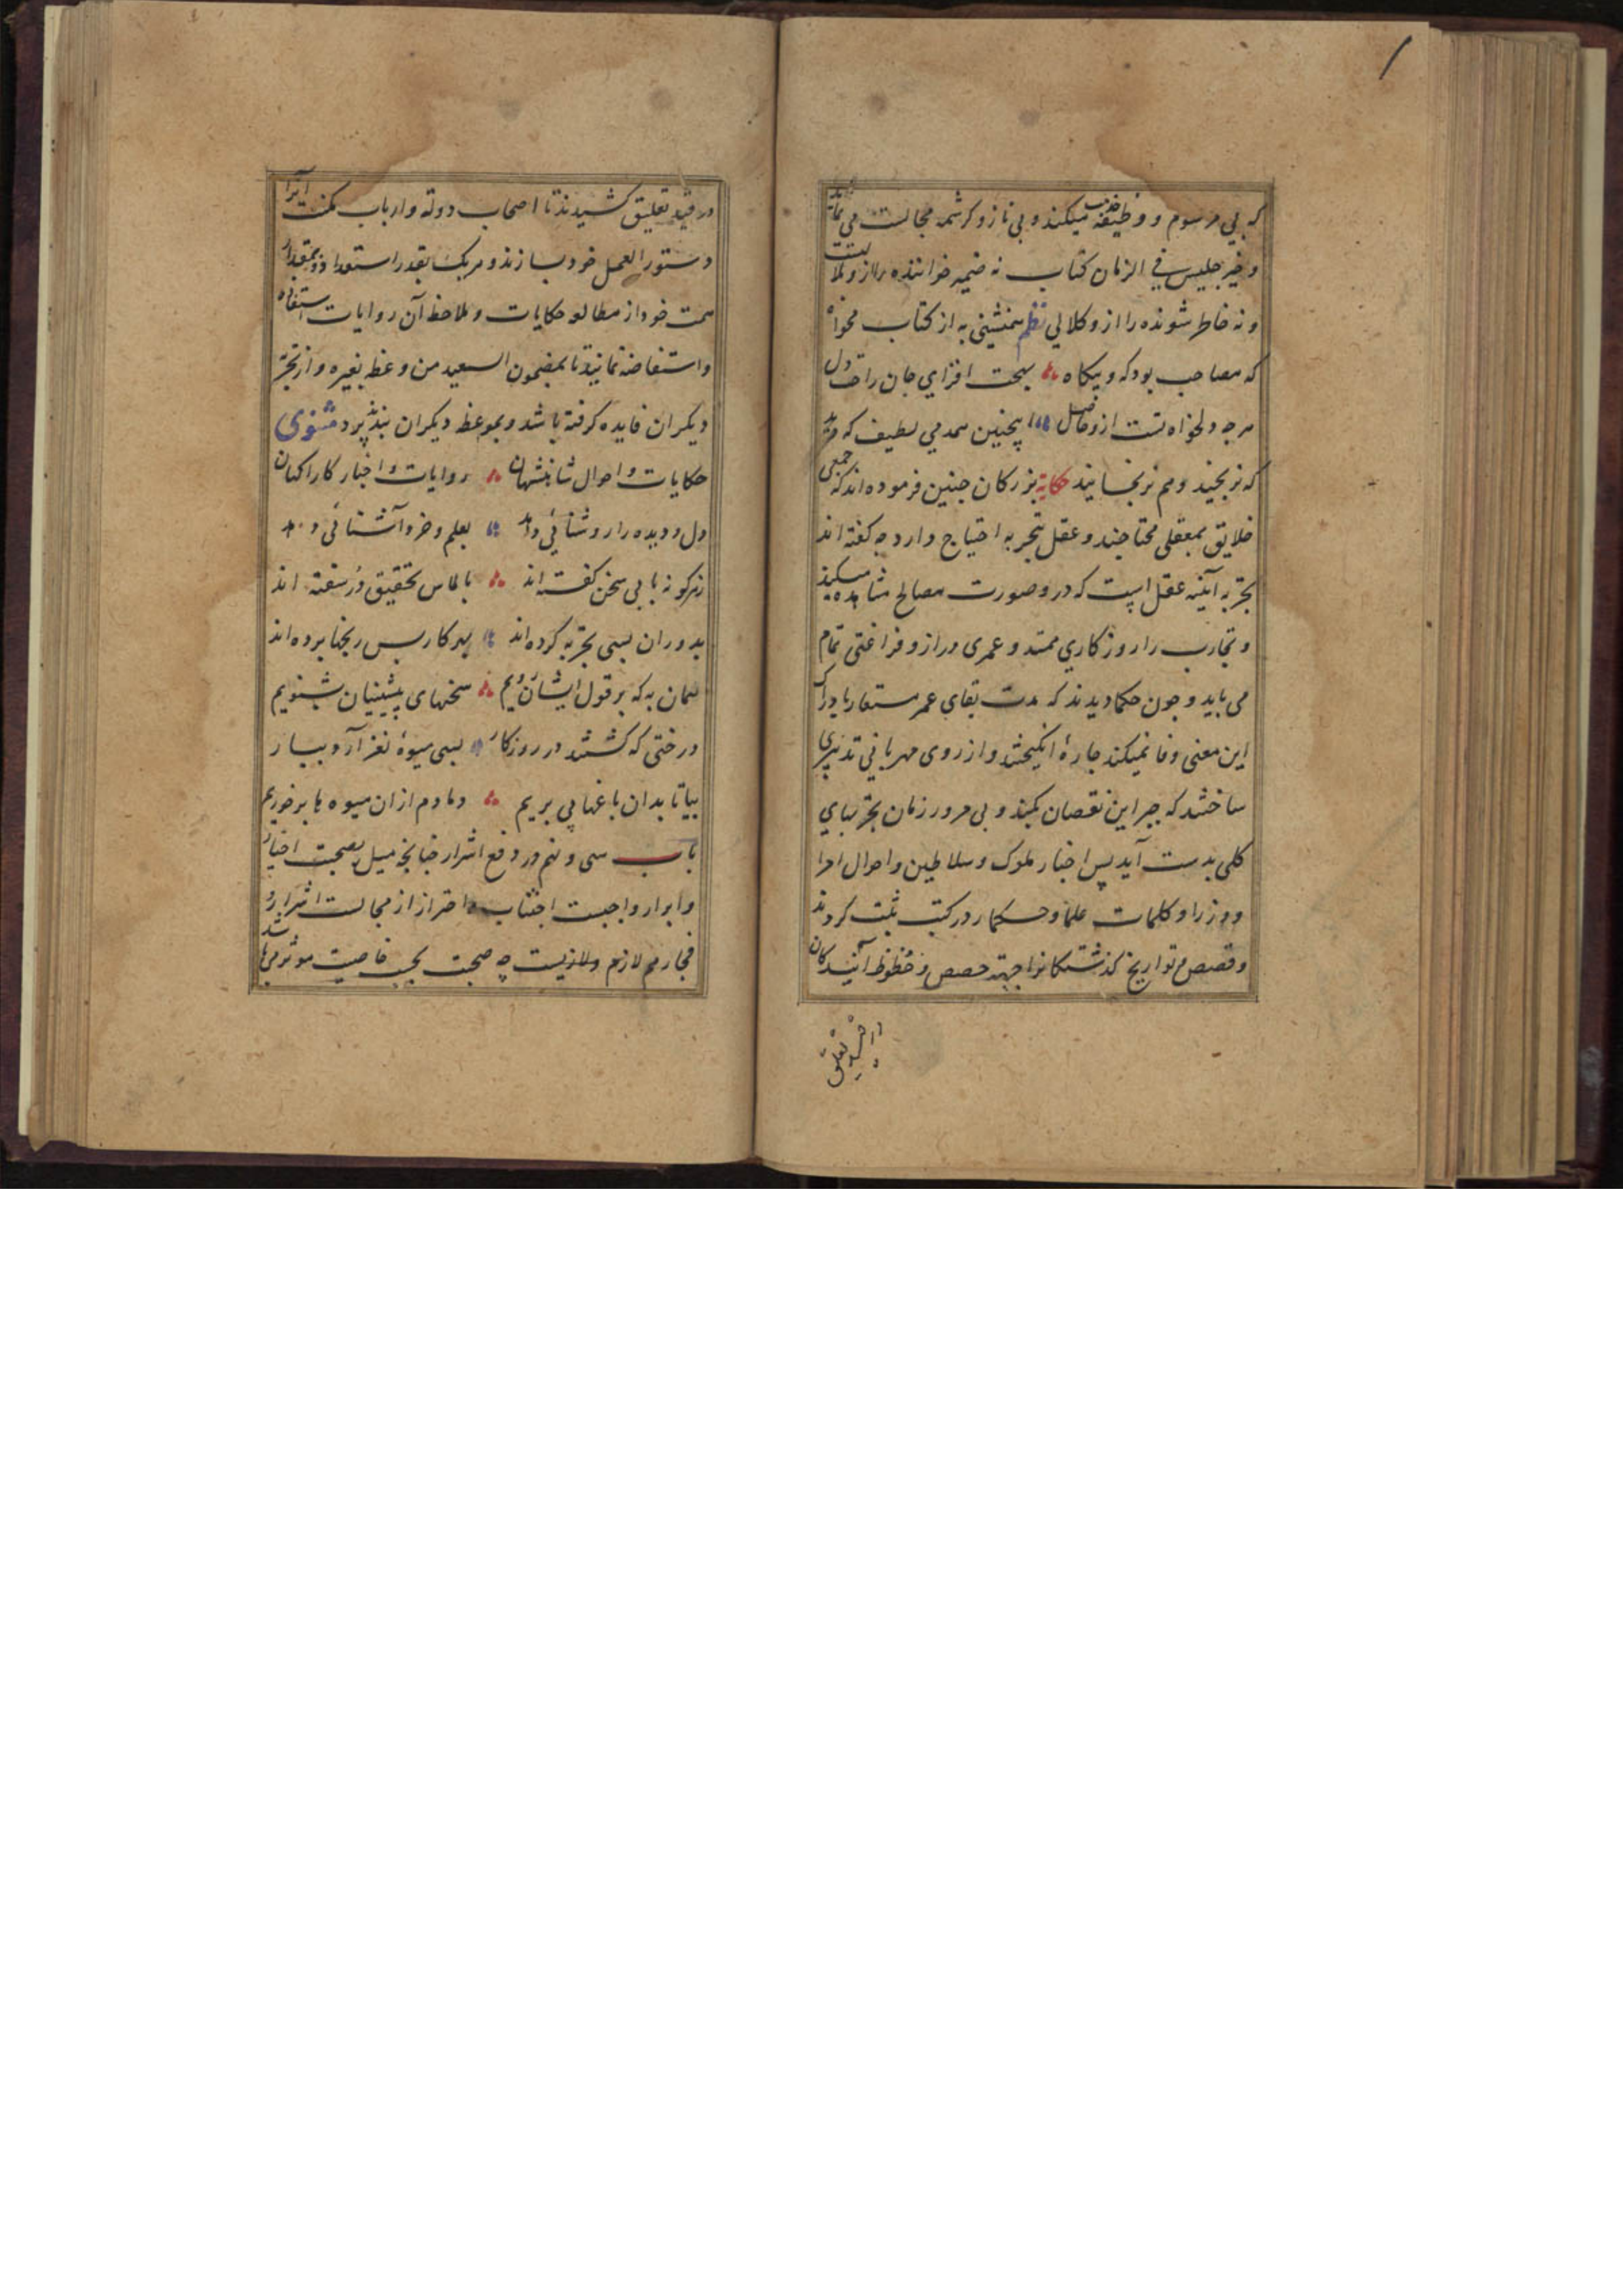 که بی مرسوم و وظیفه خدمت میکند و بی ناز و کرشمه مجالست می نماید
و خیر جلیس فی الزمان کتاب نه ضمیر خواننده را ازو ملالت
و نه خاطر شونده را ازو کلالی نظم همنشینی به از کتاب مخواه
که مصاحب بود که و بیکاه بهجت افزای جان راحت دل
هرچه دلخواه تست ازو حاصل اینچنین همدمی لطیف که دید
که نرنجید و هم نرنجانید حکایة بزرکان چنین فرموده اند که جمعی
خلایق بعقلی محتاجند و عقل بتجربه احتیاج دارد چه کفته اند
تجربه آینه عقل است که درو صورت مصالح مشاهده میکنند
و تجارب را روزکاری ممتد و عمری دراز و فراغتی تمام
می باید و چون حکما دیدند که مدت بقای عمر مستعار بادراک
این معنی وفا نمیکند چارهٔ انکیختند و از روی مهربانی تدبیری
ساختند که جبر این نقصان بکند و بی مرور زمان تجربهای
کلی بدست آید پس اخبار ملوک و سلاطین و احوال امرا
و وزرا و کلمات علما و حکما را در کتب ثبت کردند
و قصص و تواریخ کذشتکانرا جهة حصص و حظوظ آیندکان
در قید تعلیق
در قید تعلیق کشیدند تا اصحاب دولة و ارباب مکنت آنرا
دستور العمل خود سازند و هر یک بقدر استعداد و بمقدار
همت خود از مطالعه حکایات و ملاحظه آن روایات استفاده
و استفاضه نمایند تا بمضمون السعید من وعظ بغیره و از تجربه
دیکران فایده کرفته باشد و بموعظه دیکران پند پذیرد مثنوی
حکایات و احوال شاهنشهان روایات و اخبار کاراکهان
دل و دیده را روشنائی دهد بعلم و خرد آشنائی دهد
زهر کونه بابی سخن کفته اند بالماس تحقیق در سفته اند
بدوران بسی تجربه کرده اند بهر کار بس رنجها برده اند
همان به که بر قول ایشان رویم سخنهای پیشینیان بشنویم
درختی که کشتند در روزکار بسی میوهٔ نغز آرد ببار
بیا تا بدان باغها پی بریم دمادم از ان میوه ها بر خوریم
باب سی و نهم در دفع اشرار چنانچه میل بصحبت اخیار
و ابرار واجبست اجتناب و احتراز از مجالست اشرار و
فجار هم لازم و لازیست چه صحبت بحسب خاصیت موثر می باشد